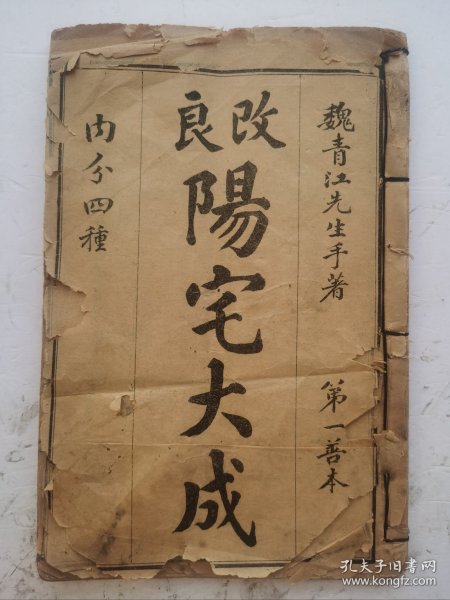 魏青江先生手著 第一善本
改良
陽宅大成
内分四種
孔夫子旧书网
www.kongfz.com